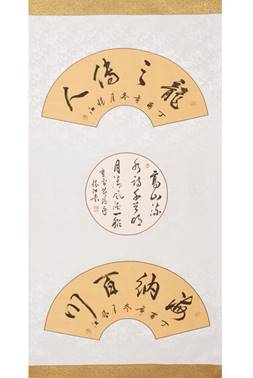 龍之傳人
丁酉年冬月
高山流
水詩千首明
月清風酒一船
海納百川
丁酉年冬月